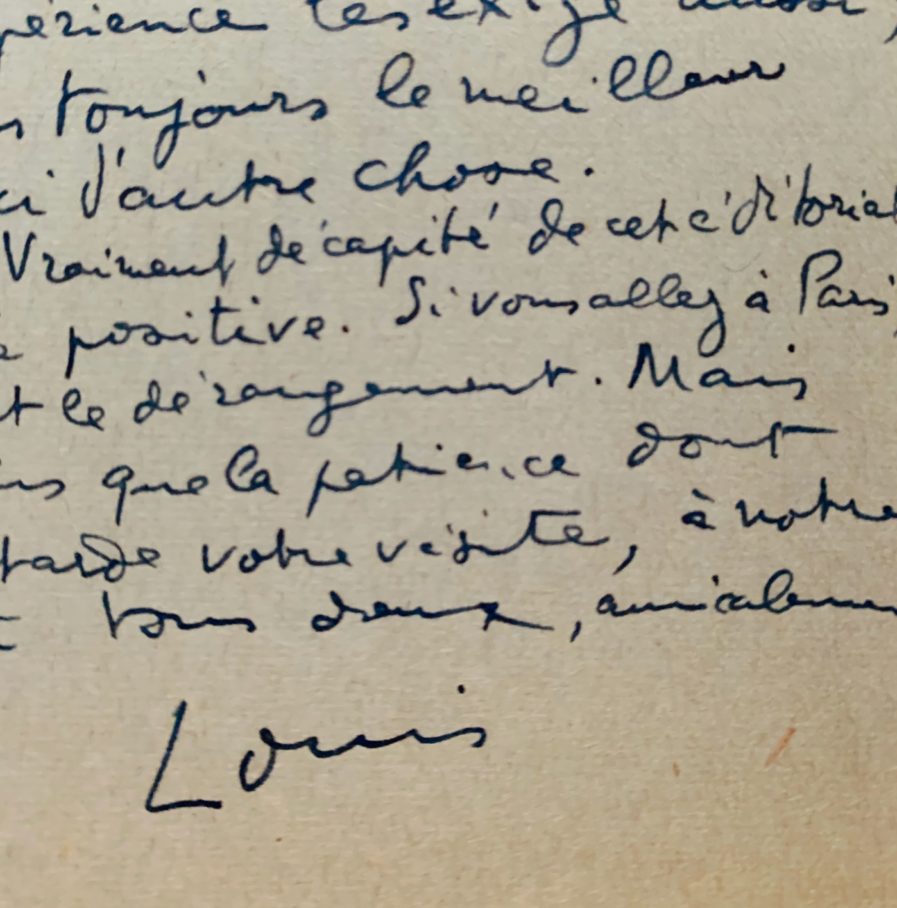 périence les exige aussi,
s toujours le meilleur
ci d'autre chose.
Vraiment décapité de cet éditorial
positive. Si vous allez à Paris,
t le dérangement. Mais
ns que la patience dont
tarde votre visite, à notre
tous deux, amicalemen
Louis